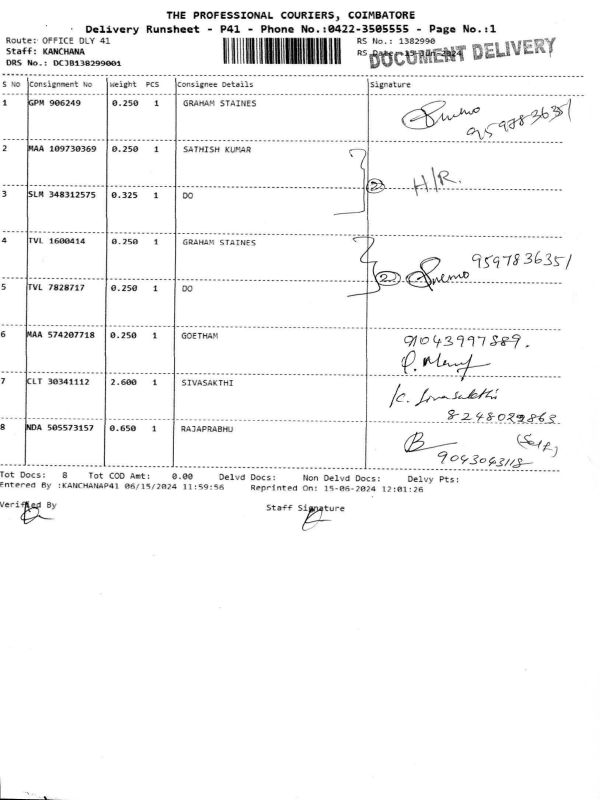 THE PROFESSIONAL COURIERS, COIMBATORE
Delivery Runsheet - P41 - Phone No.:0422-3505555 - Page No.:1
Route: OFFICE DLY 41
RS No.: 1382990
Staff: KANCHANA
RS Date: 15-Jun-2024
DOCUMENT DELIVERY
DRS No.: DCJB138299001
S No Consignment No Weight PCS Consignee Details Signature
1 GPM 906249 0.250 1 GRAHAM STAINES
9597836351
2 MAA 109730369 0.250 1 SATHISH KUMAR
2 H/R.
3 SLM 348312575 0.325 1 DO
4 TVL 1600414 0.250 1 GRAHAM STAINES
2 9597836351
5 TVL 7828717 0.250 1 DO
6 MAA 574207718 0.250 1 GOETHAM
91043997889.
7 CLT 30341112 2.600 1 SIVASAKTHI
K. Sivasakthi
8248029863
8 NDA 505573157 0.650 1 RAJAPRABHU
(Self)
9043043118
Tot Docs: 8 Tot COD Amt: 0.00 Delvd Docs: Non Delvd Docs: Delvy Pts:
Entered By :KANCHANAP41 06/15/2024 11:59:56 Reprinted On: 15-06-2024 12:01:26
Verified By Staff Signature